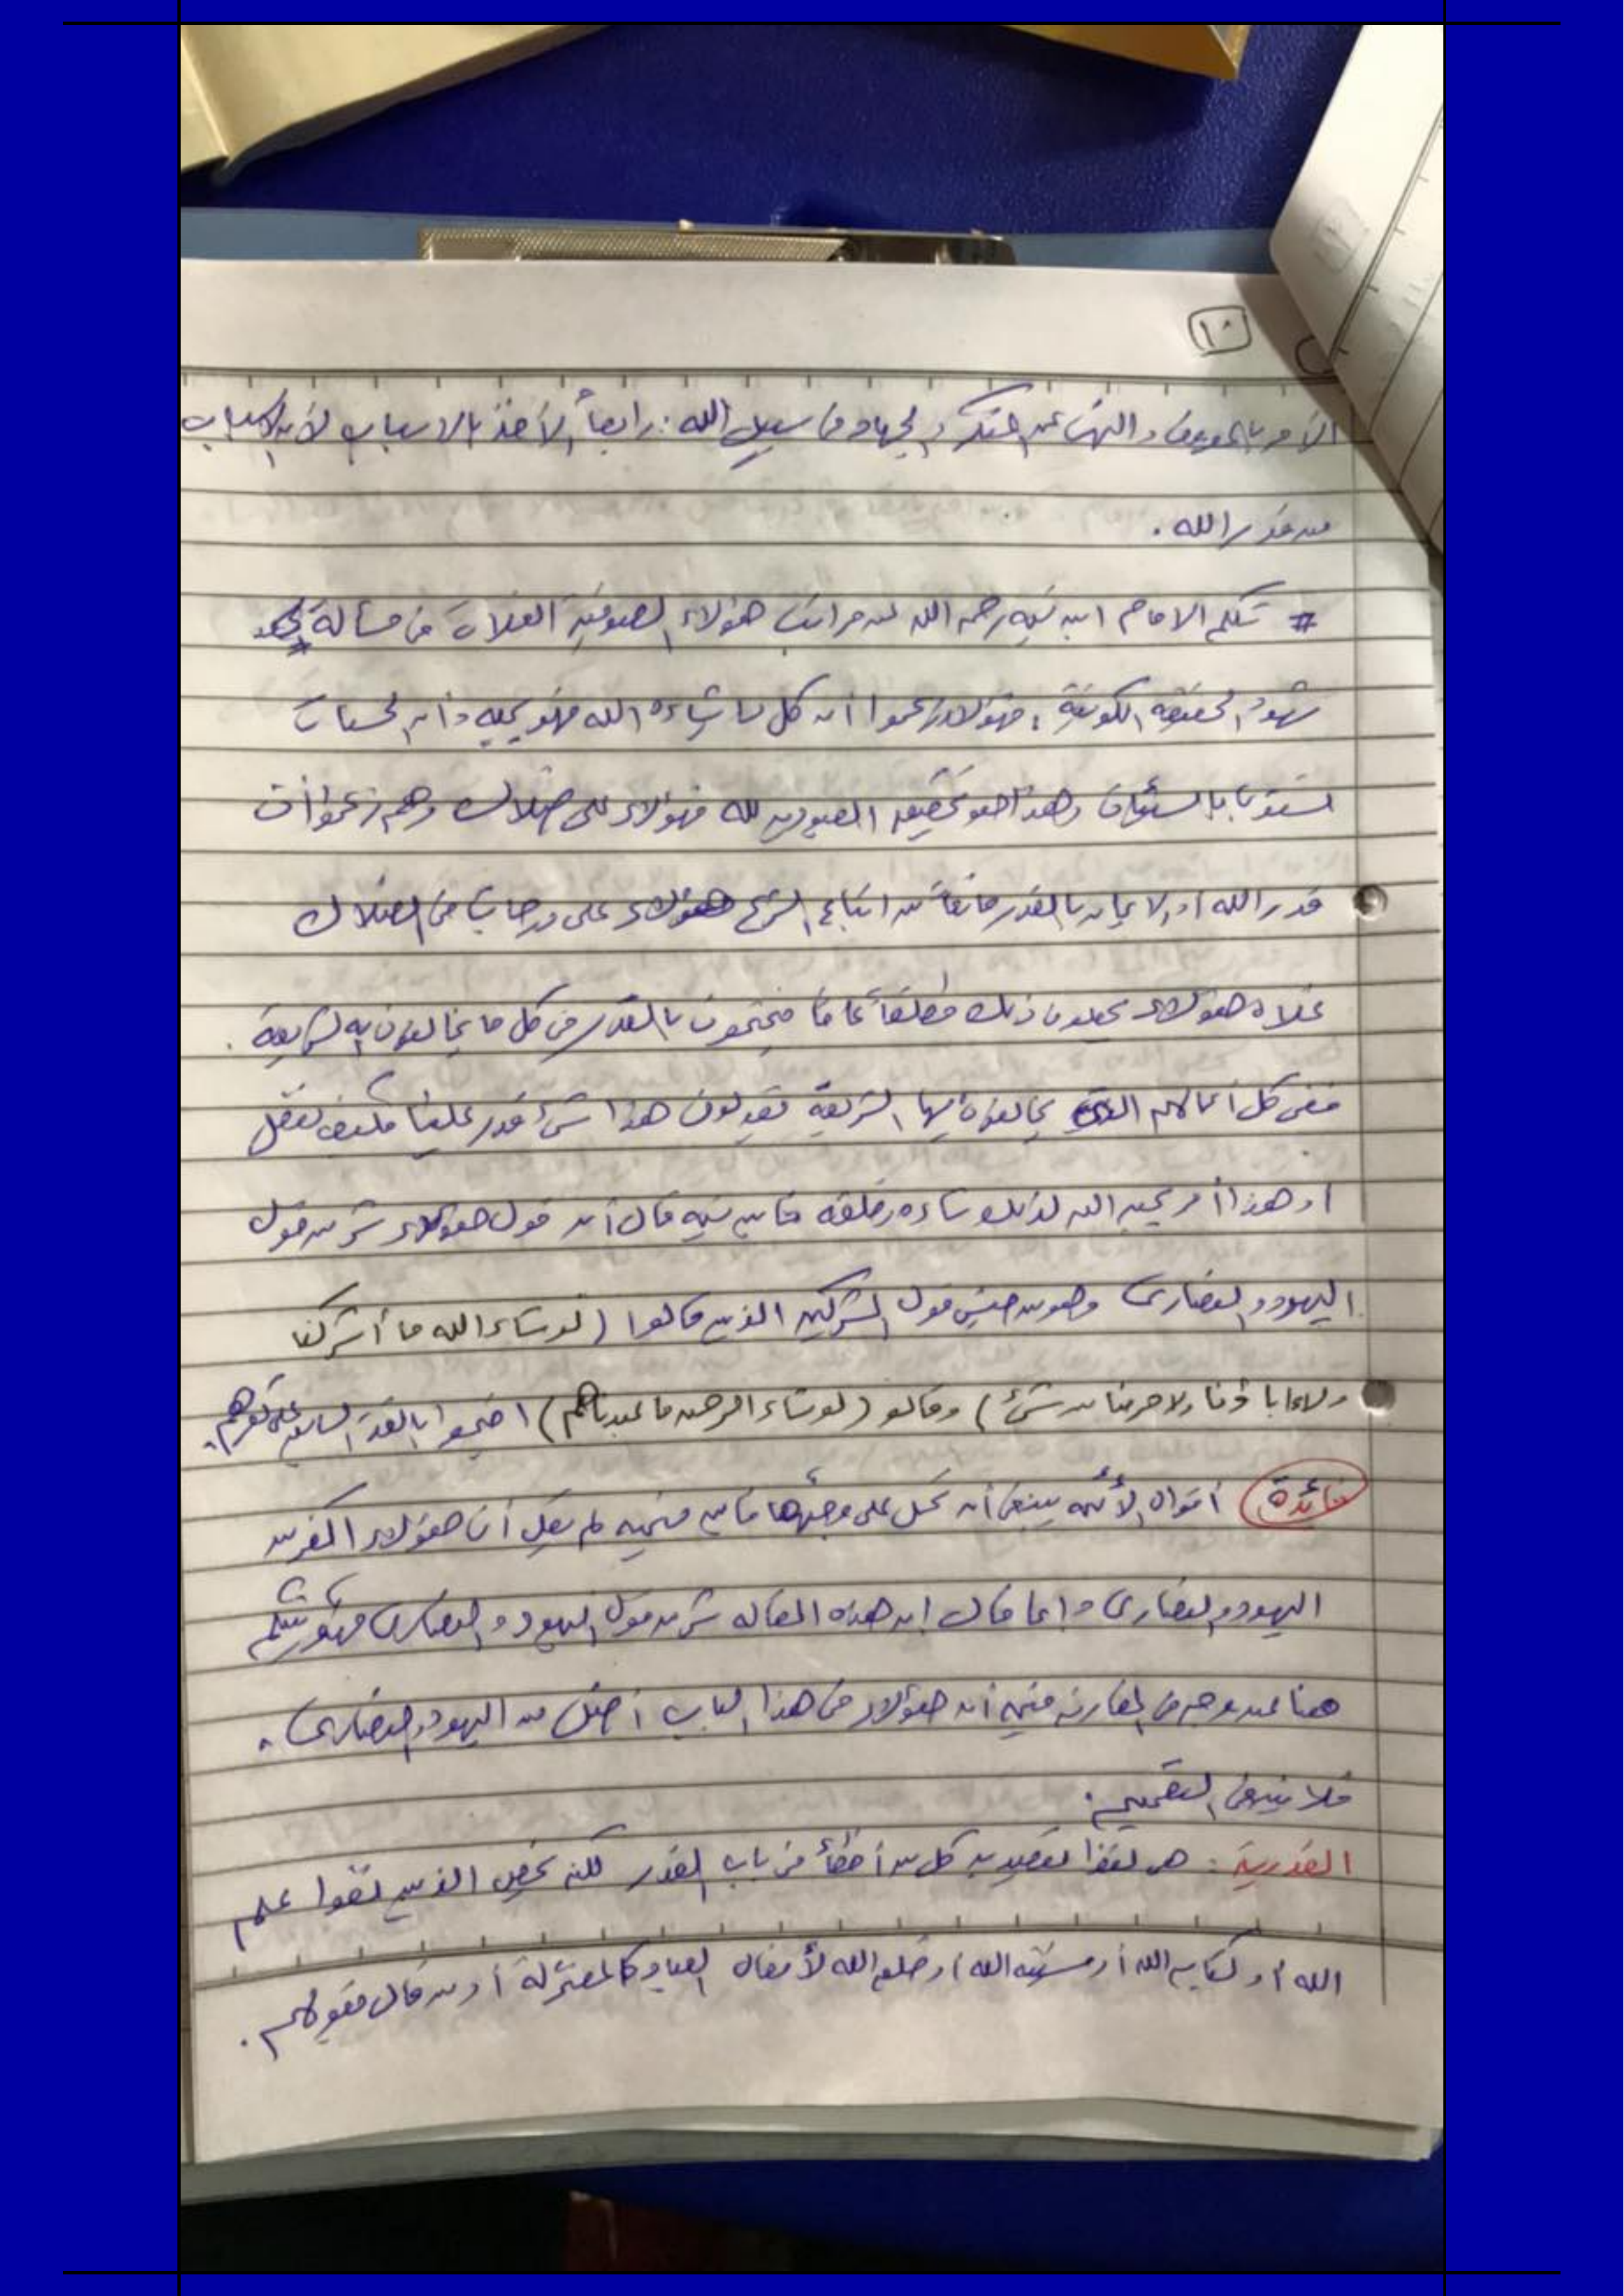 ١٠
الأمر بالمعروف والنهي عن المنكر والجهاد في سبيل الله : رابعاً الأخذ بالاسباب لأن الاسباب
من قدر الله .
# تكلم الامام ابن تيمية رحمه الله عن مراتب هؤلاء الصوفية الغلاة في مسألة
شهود الحقيقة الكونية ؛ فهؤلاء زعموا أن كل ما شاءه الله فهو يحبه وأن الحسنات
استوت بالسيئات وهذا هو تحقيق العبودية لله فهؤلاء على ضلال وهم زعموا أن
قدر الله أو الايمان بالقدر مانعاً من اتباع الشرع هؤلاء على درجات في الضلال
غلاة هؤلاء يجعلون ذلك مطلقاً عاما فيحتجون بالقدر في كل ما يخالفون به الشريعة .
ففي كل أعمالهم التي يخالفون بها الشريعة يقولون هذا شيء قدر علينا فكيف نفعل
او هذا أمر يحبه الله لذلك شاءه وخلقه فابن تيمية قال أن قول هؤلاء شر من قول
اليهود والنصارى وهو من جنس قول المشركين الذين قالوا (لو شاء الله ما أشركنا
ولا ءاباؤنا ولا حرمنا من شئ) وقالو (لو شاء الرحمن ما عبدناهم) احتجوا بالقدر السابق على كفرهم .
فائدة أقوال الأئمة ينبغي أن تحمل على وجهها فابن تيمية لم يقل أن هؤلاء اكفر من
اليهود والنصارى وانما قال ان هذه المقاله شر من قول اليهود والنصارى فهو يتكلم
هنا عن وجه في المقارنة فيه أن هؤلاء في هذا الباب أضل من اليهود والنصارى .
فلا ينبغي التعميم .
القدرية : هى لفظ يقصد به كل من أخطأ في باب القدر لكنه يخص الذين نفوا علم
الله أو كتابة الله أو مشيئة الله أو خلق الله لأفعال العباد كالمعتزلة أو من قال بقولهم .